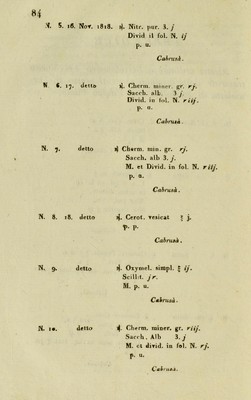 84
N. 5. 16. Nov. 1818. ℞. Nitr. pur. ʒ. j
Divid il fol. N. ij
p. u.
Cabrusà.
N. 6. 17. detto ℞. Cherm. miner. gr. rj.
Sacch. alb. ʒ j.
Divid. in fol. N. riij.
p. u.
Cabrusà.
N. 7. detto ℞ Cherm. min. gr. rj.
Sacch. alb ʒ. j.
M. et Divid. in fol. N. riij.
p. u.
Cabrusà.
N. 8. 18. detto ℞. Cerot. vesicat ℥ j.
p. p.
Cabrusà.
N. 9. detto ℞. Oxymel. simpl. ℥ ij.
Scillit. jr.
M. p. u.
Cabrusà.
N. 10. detto ℞. Cherm. miner. gr. riij.
Sacch. Alb ʒ. j
M. et divid. in fol. N. rj.
p. u.
Cabrusà.